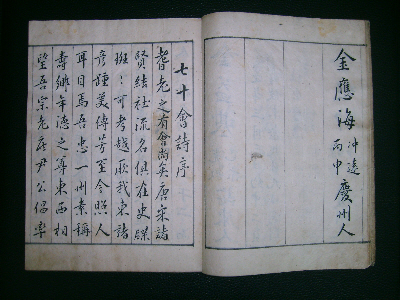 金應海 冲遠 丙申 慶州人
七十會詩序
耆老之有會尚矣唐宋諸
賢結社流名俱在史牒
班〻可考越厥我東諸
彦踵美傳芳至今照人
耳目焉吾忠一州素稱
壽鄉年德之尊東西相
望吾宗老尹公倡率